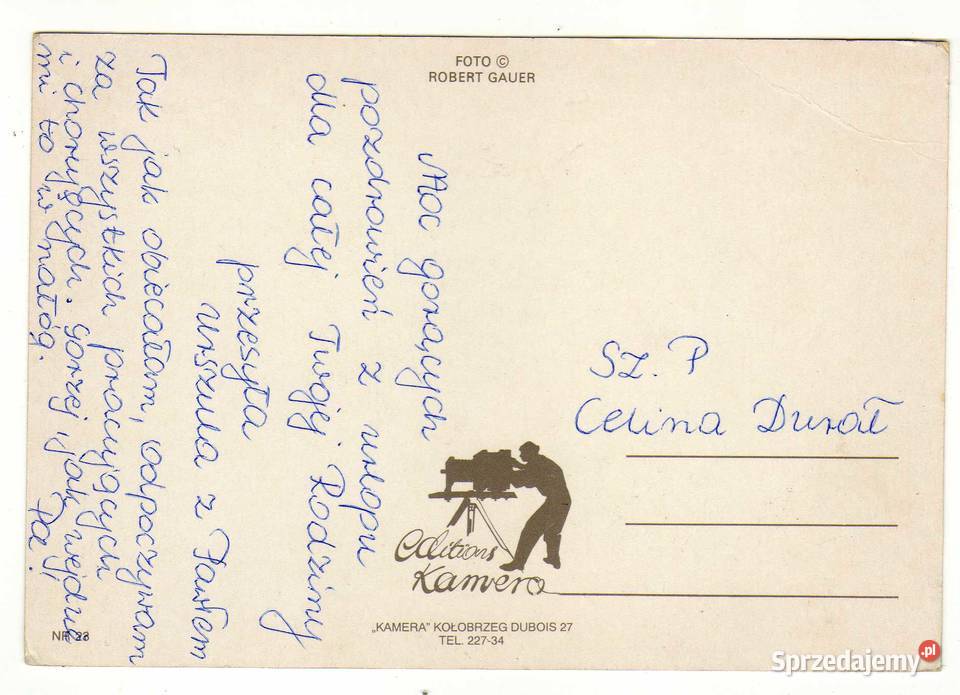 FOTO ©
ROBERT GAUER
Moc gorących
pozdrowień z urlopu
dla całej Twojej Rodziny
przesyła
Urszula z Pawłem
Tak jak obiecałam, odpoczywam
za wszystkich pracujących
i chorujących. Gorzej, jak wejdzie
mi to w nałóg. Pa!
SZ. P
Celina Durał
editions
Kamera
„KAMERA” KOŁOBRZEG DUBOIS 27
TEL. 227-34
NR 23
Sprzedajemy.pl